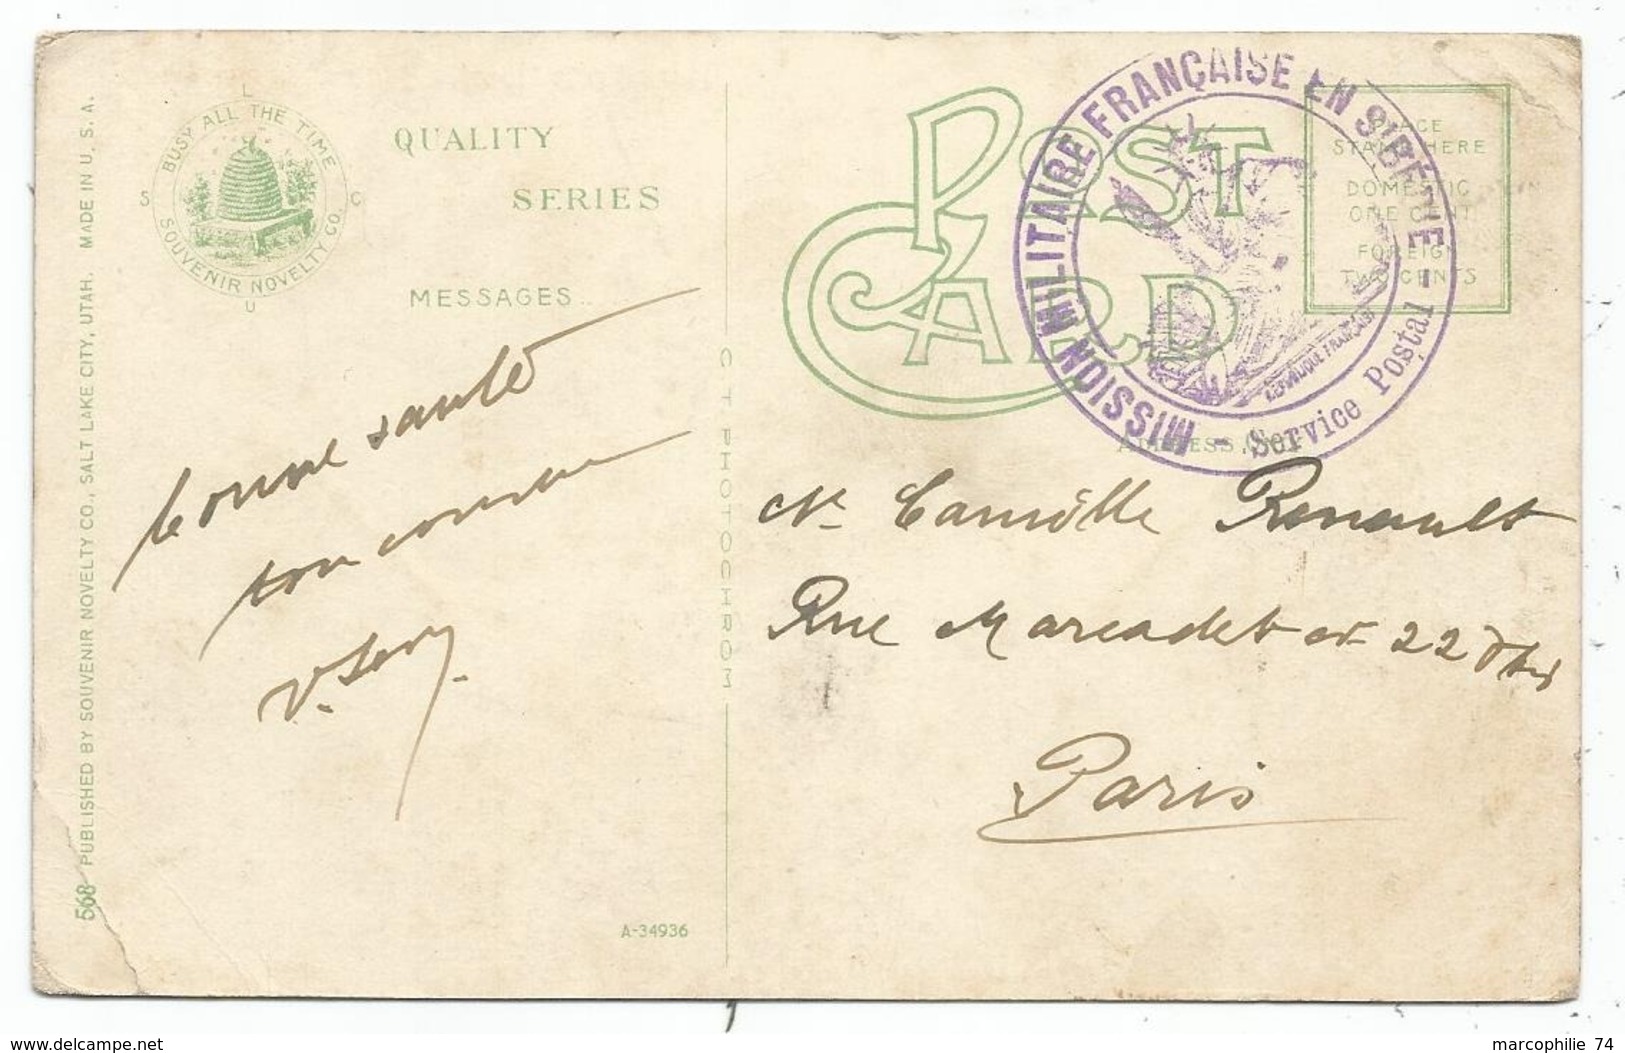 BUSY ALL THE TIME
SOUVENIR NOVELTY CO.
L
S
C
U
QUALITY
SERIES
MESSAGES
PUBLISHED BY SOUVENIR NOVELTY CO., SALT LAKE CITY, UTAH. MADE IN U. S. A.
568
A-34936
C T PHOTOCHROM
bonne santé
ton cousin
POST
CARD
PLACE
STAMP HERE
DOMESTIC
ONE CENT
FOREIGN
TWO CENTS
MISSION MILITAIRE FRANÇAISE EN SIBÉRIE -
- Service Postal -
RÉPUBLIQUE FRANÇAISE
ADDRESS ONLY
Mr Camille Renault
Rue Marcadet 22
Paris
www.delcampe.net
marcophilie 74